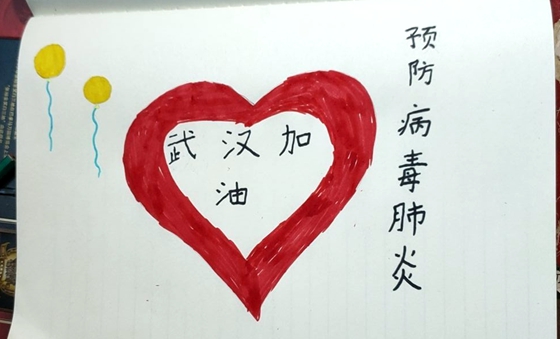 武汉加
油
预防病毒肺炎